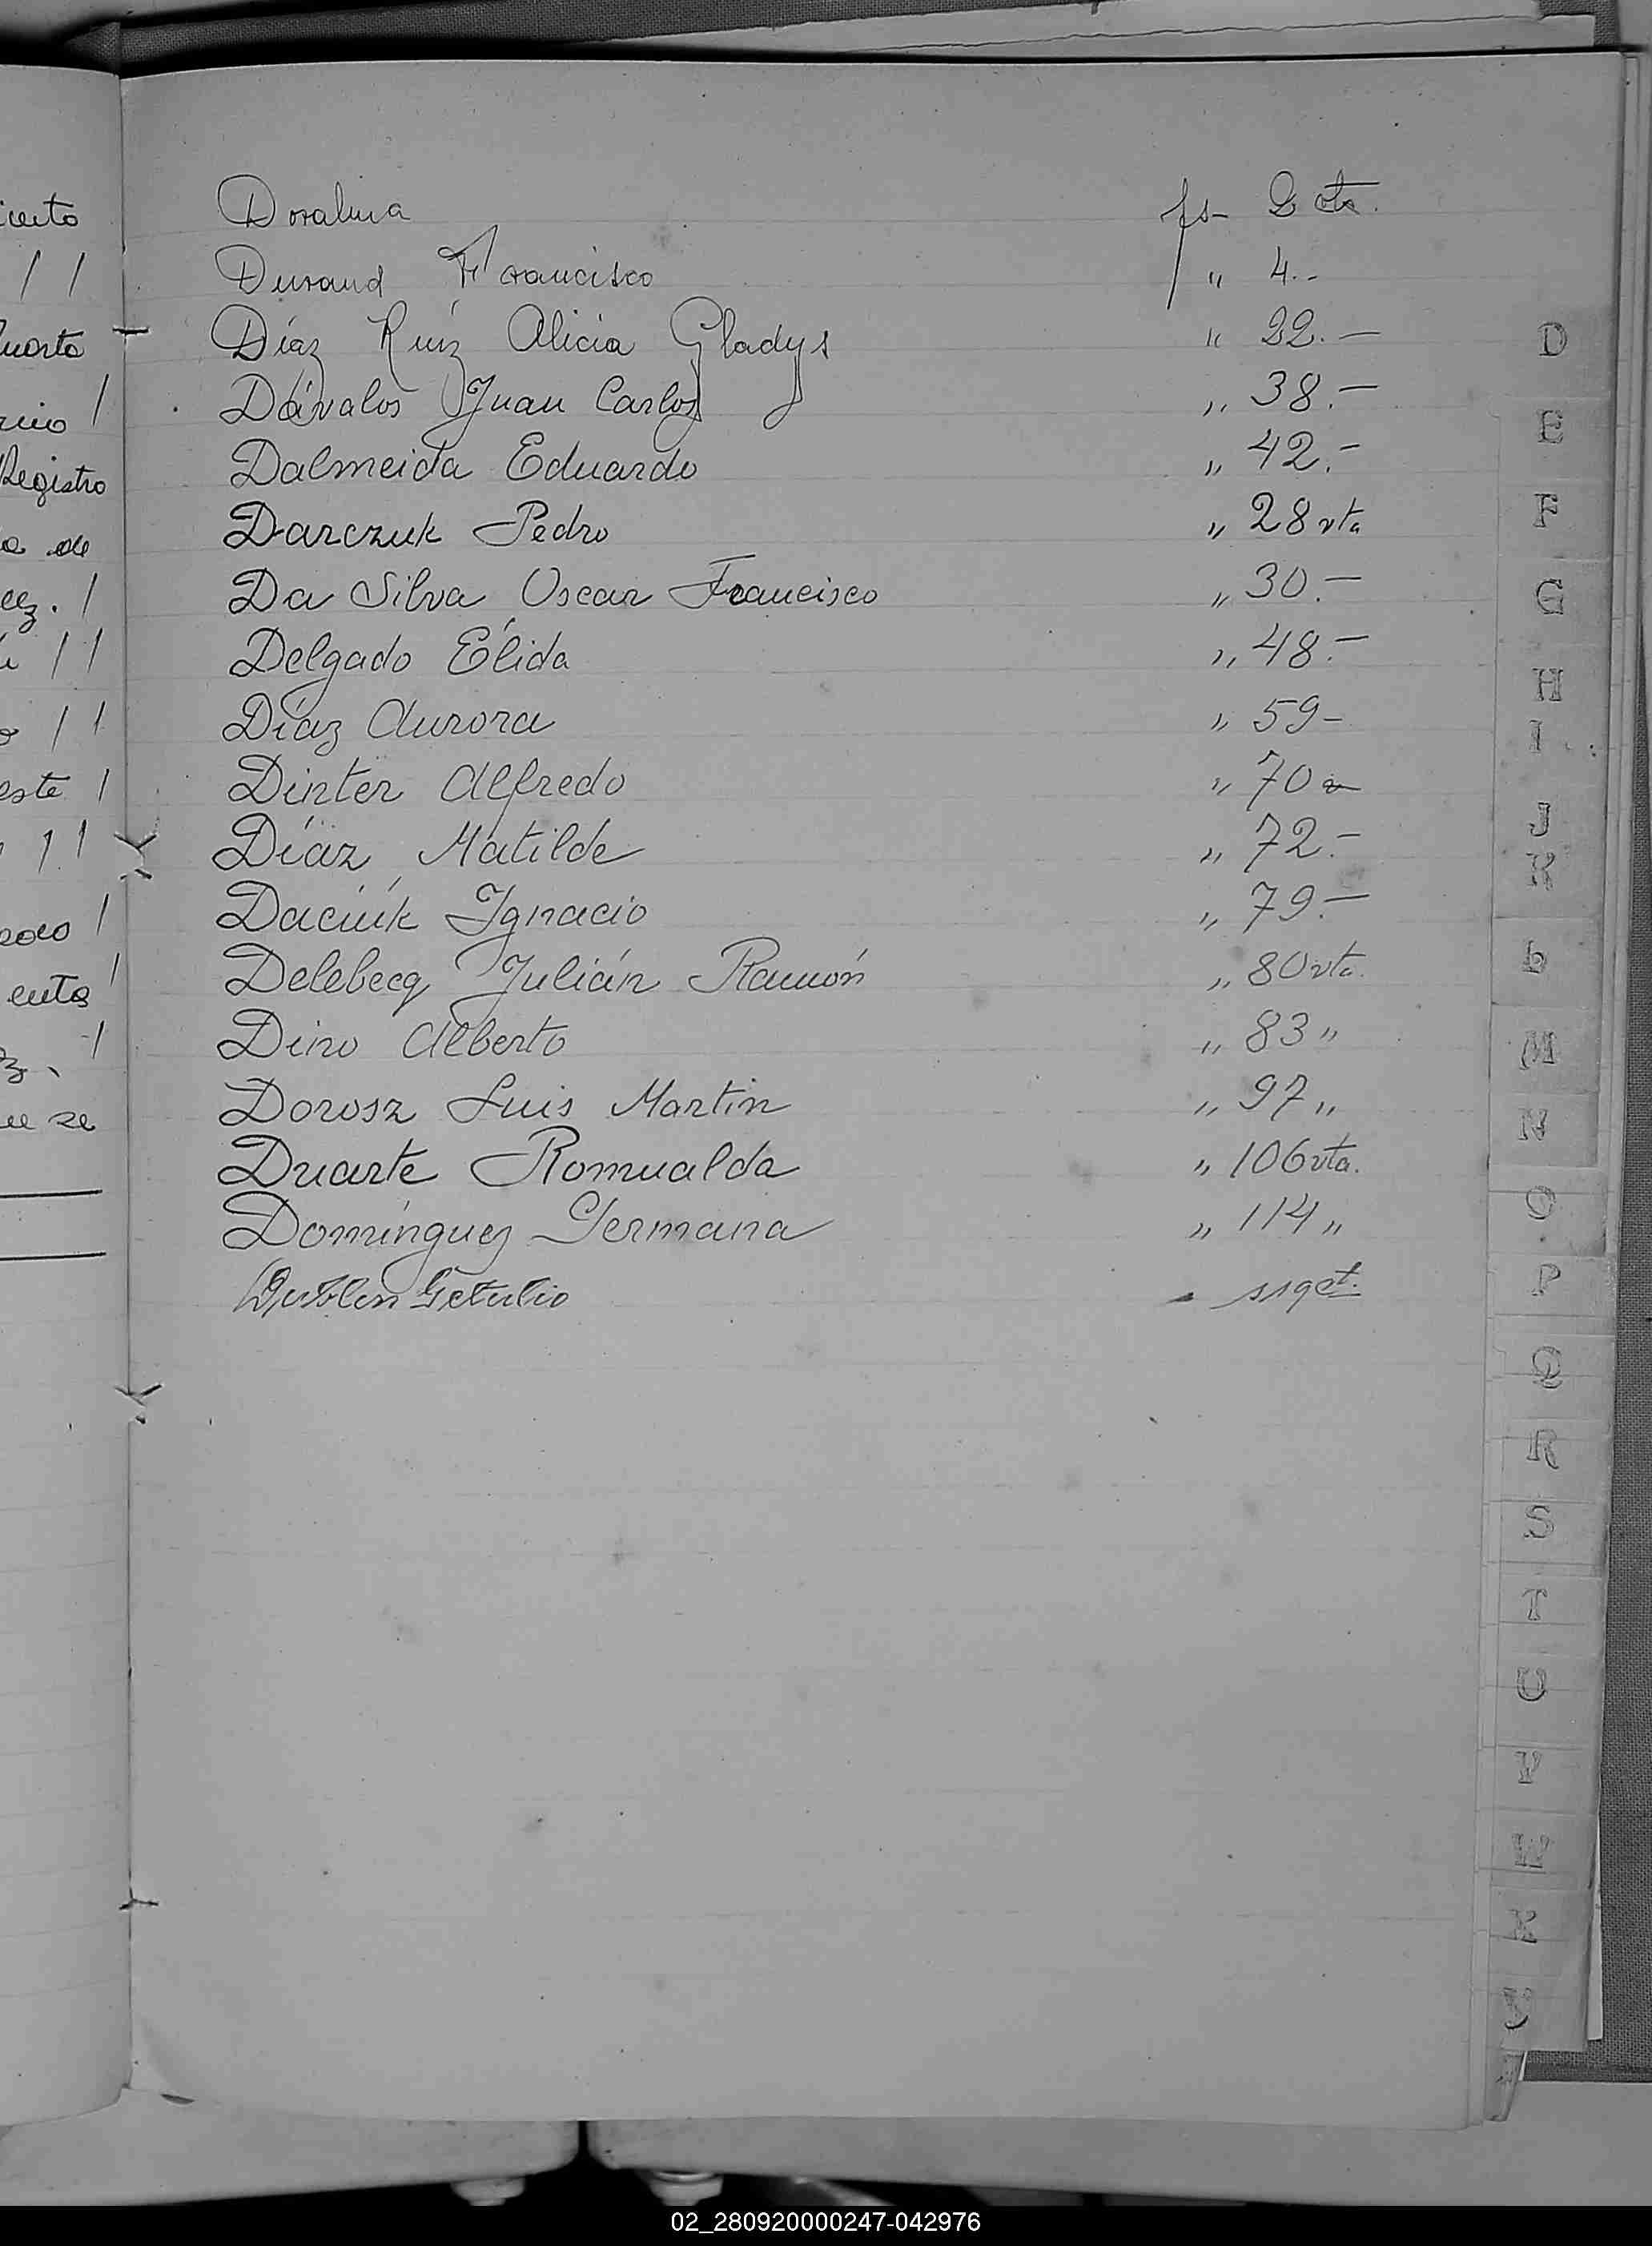 Doralina fs- 2 vta.
Durand Francisco " 4.-
Díaz Ruíz Alicia Gladys " 22.-
Dávalos Juan Carlos " 38.-
Dalmeida Eduardo " 42.-
Darczuk Pedro " 28 vta
Da Silva Oscar Francisco " 30.-
Delgado Élida " 48.-
Díaz Aurora " 59-
Dinter Alfredo " 70
Díaz Matilde " 72.-
Daciuk Ignacio " 79.-
Delebecq Julián Ramón " 80 vta.
Dino Alberto " 83 "
Dorosz Luis Martin " 97 "
Duarte Romualda " 106 vta.
Domínguez Germana " 114 "
Getulio
iento
uarto
Registro
a de
ez.
este
enta
ue se
D
E
F
G
H
I
J
K
L
M
N
O
P
Q
R
S
T
U
V
W
X
Y
02_280920000247-042976